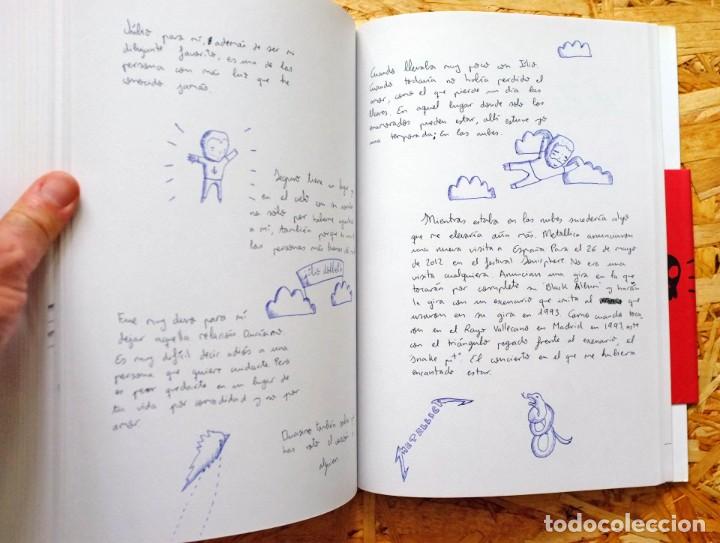 Julio para mí, además de ser mi
dibujante favorito, es una de las
persona con más luz que he
conocido jamás.
Seguro tiene un lugar
en el cielo con su
no solo por haberme
a mí, también porque
las personas más buenas
Fue muy duro para mí
dejar aquella relación Duriano.
Es muy difícil decir adiós a una
persona que quiere cuidarte. Pero
es peor quedarte en un lugar de
tu vida por comodidad y no por
amor.
también
has solo el
alguien
Cuando llevaba muy poco con Islio.
Cuando todavía no había perdido el
amor, como el que pierde un día las
llaves. En aquel lugar donde solo los
enamorados pueden estar, allí estuve yo
una temporada; En las nubes.
Mientras estaba en las nubes sucedería algo
que me elevaría aún más. Metallica anunciaron
una nueva visita a España Para el 26 de mayo
de 2012 en el festival Sonisphere. No era una
visita cualquiera. Anuncian una gira en la que
tocarán por completo su 'Black Album' y harán
la gira con un escenario que imita al que
usaron en su gira en 1993. Como cuando toca-
ron en el Rayo Vallecano en Madrid en 1993, este
con el triángulo pegado frente al escenario, el
Snake pit. El concierto en el que me hubiera
encantado estar.
METALLICA
todocoleccion